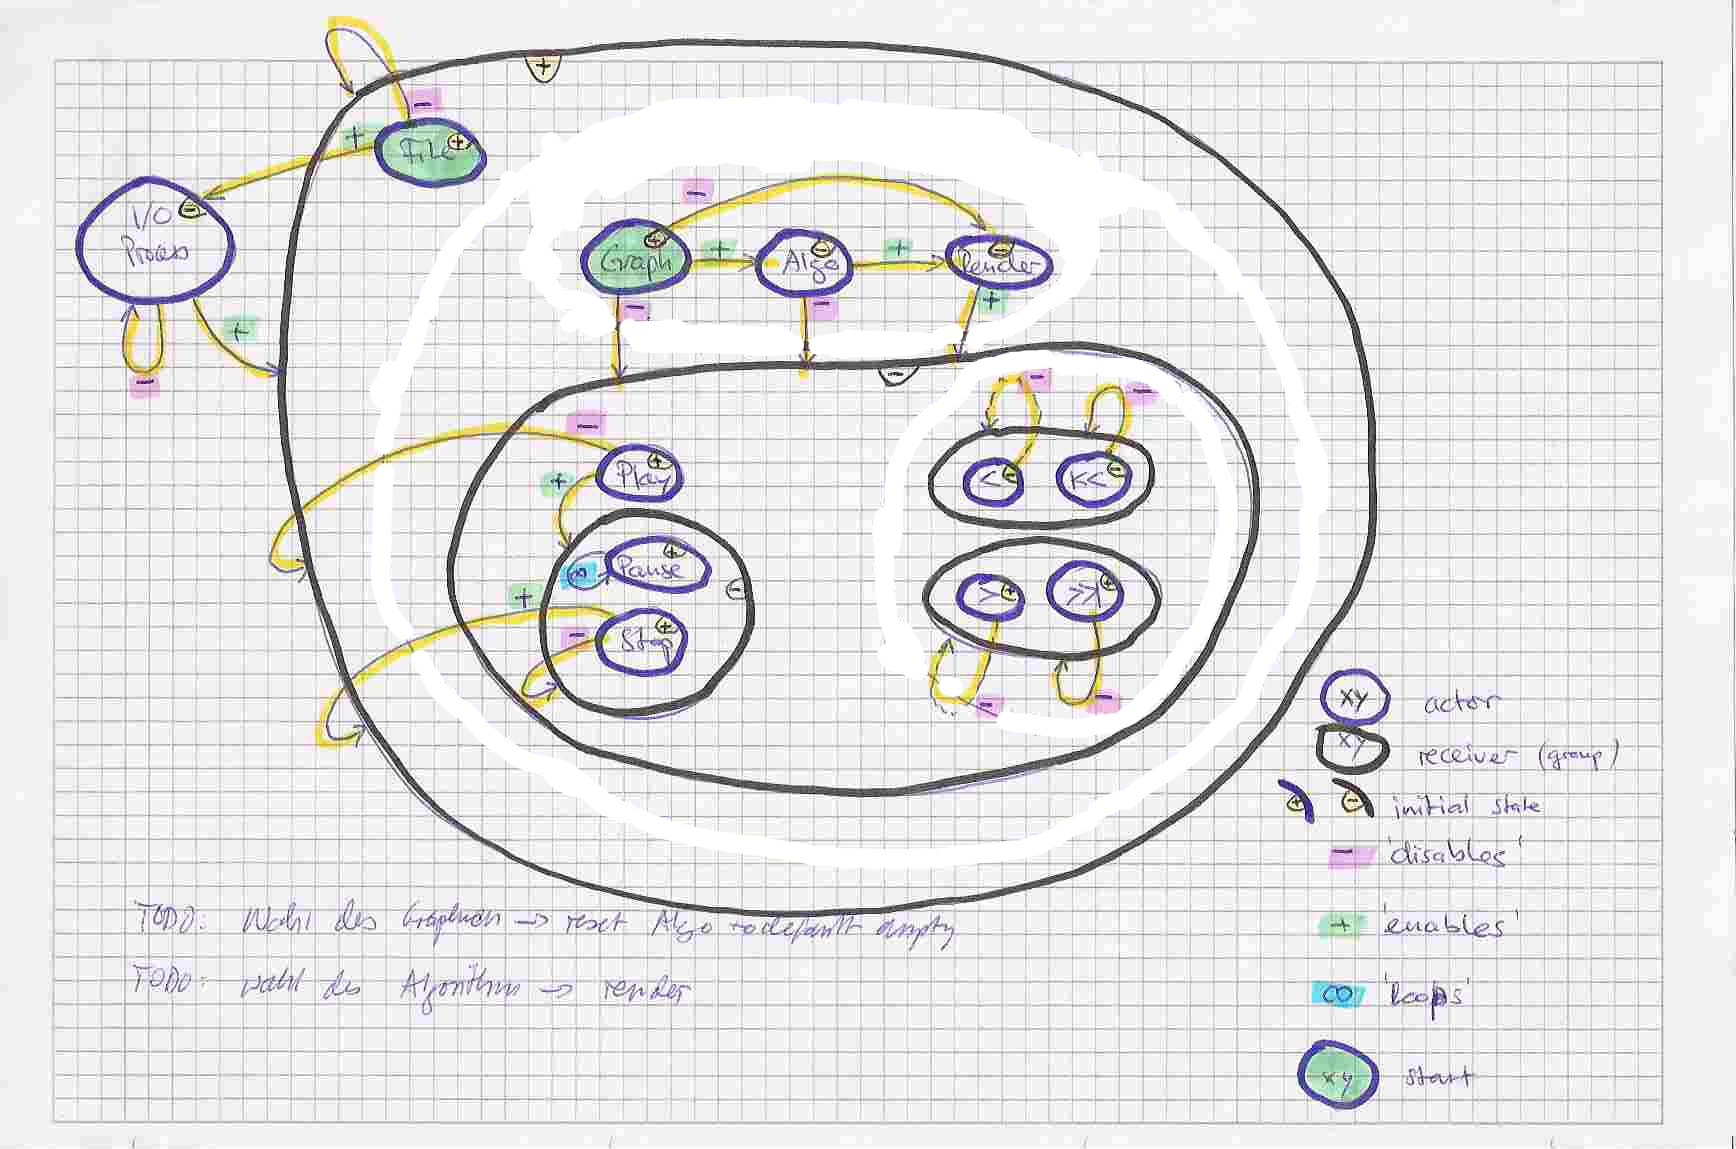 +
−
+
File +
I/O −
Process
−
+
−
Graph +
+
Algo −
+
Render −
−
−
+
−
−
−
−
Play +
+
< −
K< −
Pause +
∞
−
+
Stop +
−
> +
>>| +
−
−
xy actor
xy receiver (group)
+ − initial state
− 'disables'
+ 'enables'
∞ 'loops'
xy start
TODO: Wahl des Graphen -> reset Algo to default empty
TODO: Wahl des Algorithmus -> render